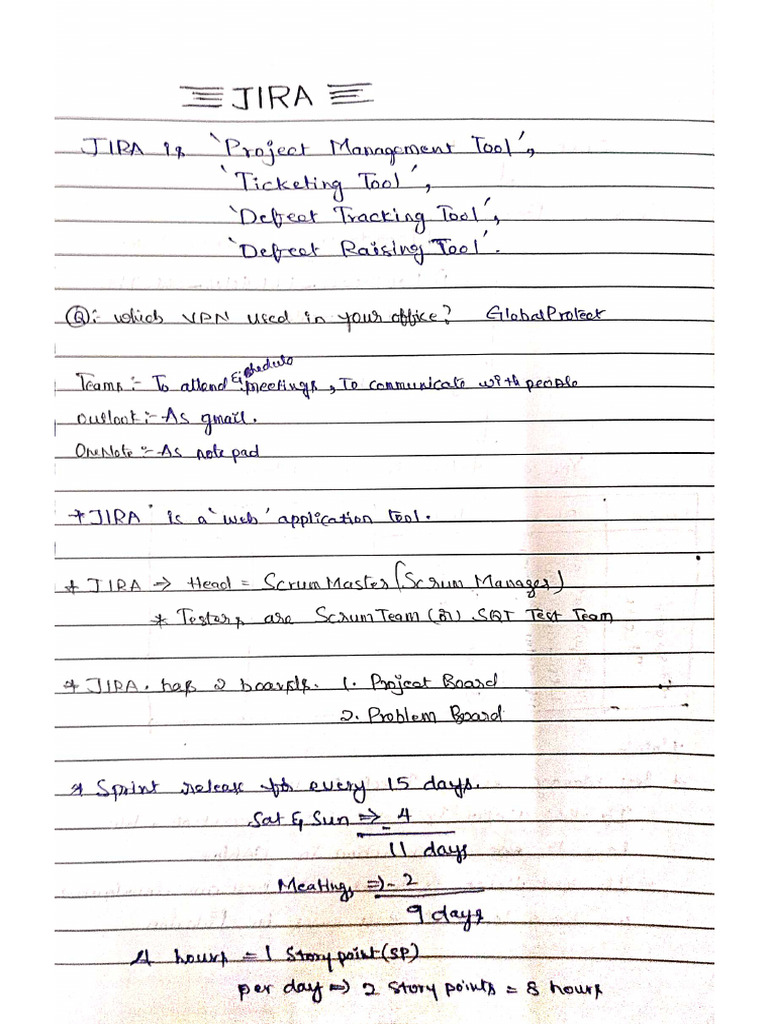 JIRA
JIRA is 'Project Management Tool',
'Ticketing Tool',
'Defect Tracking Tool',
'Defect Raising Tool'.
Q: which VPN used in your office? GlobalProtect
Teams:- To attend & schedule meetings, To communicate with people
Outlook:- As gmail.
OneNote:- As note pad
* JIRA is a 'web' application tool.
* JIRA → Head = Scrum Master (Scrum Manager)
* Testers are Scrum Team (or) SQT Test Team
* JIRA. has 2 boards. 1. Project Board
2. Problem Board
* Sprint release for every 15 days.
Sat & Sun ⇒ - 4
11 days
Meatings ⇒ - 2
9 days
4 hours = 1 Story point (SP)
per day ⇒ 2 story points = 8 hours